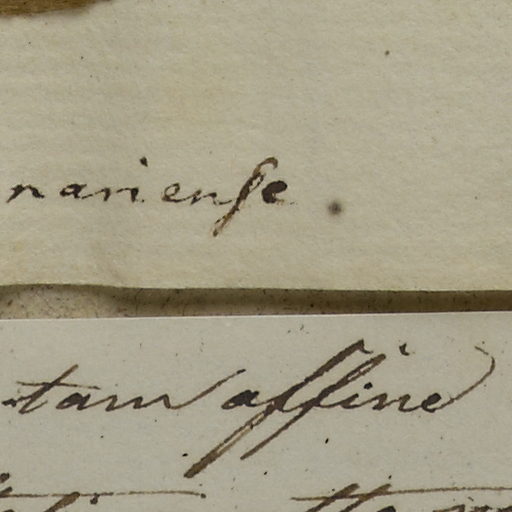 nariense
tam affine